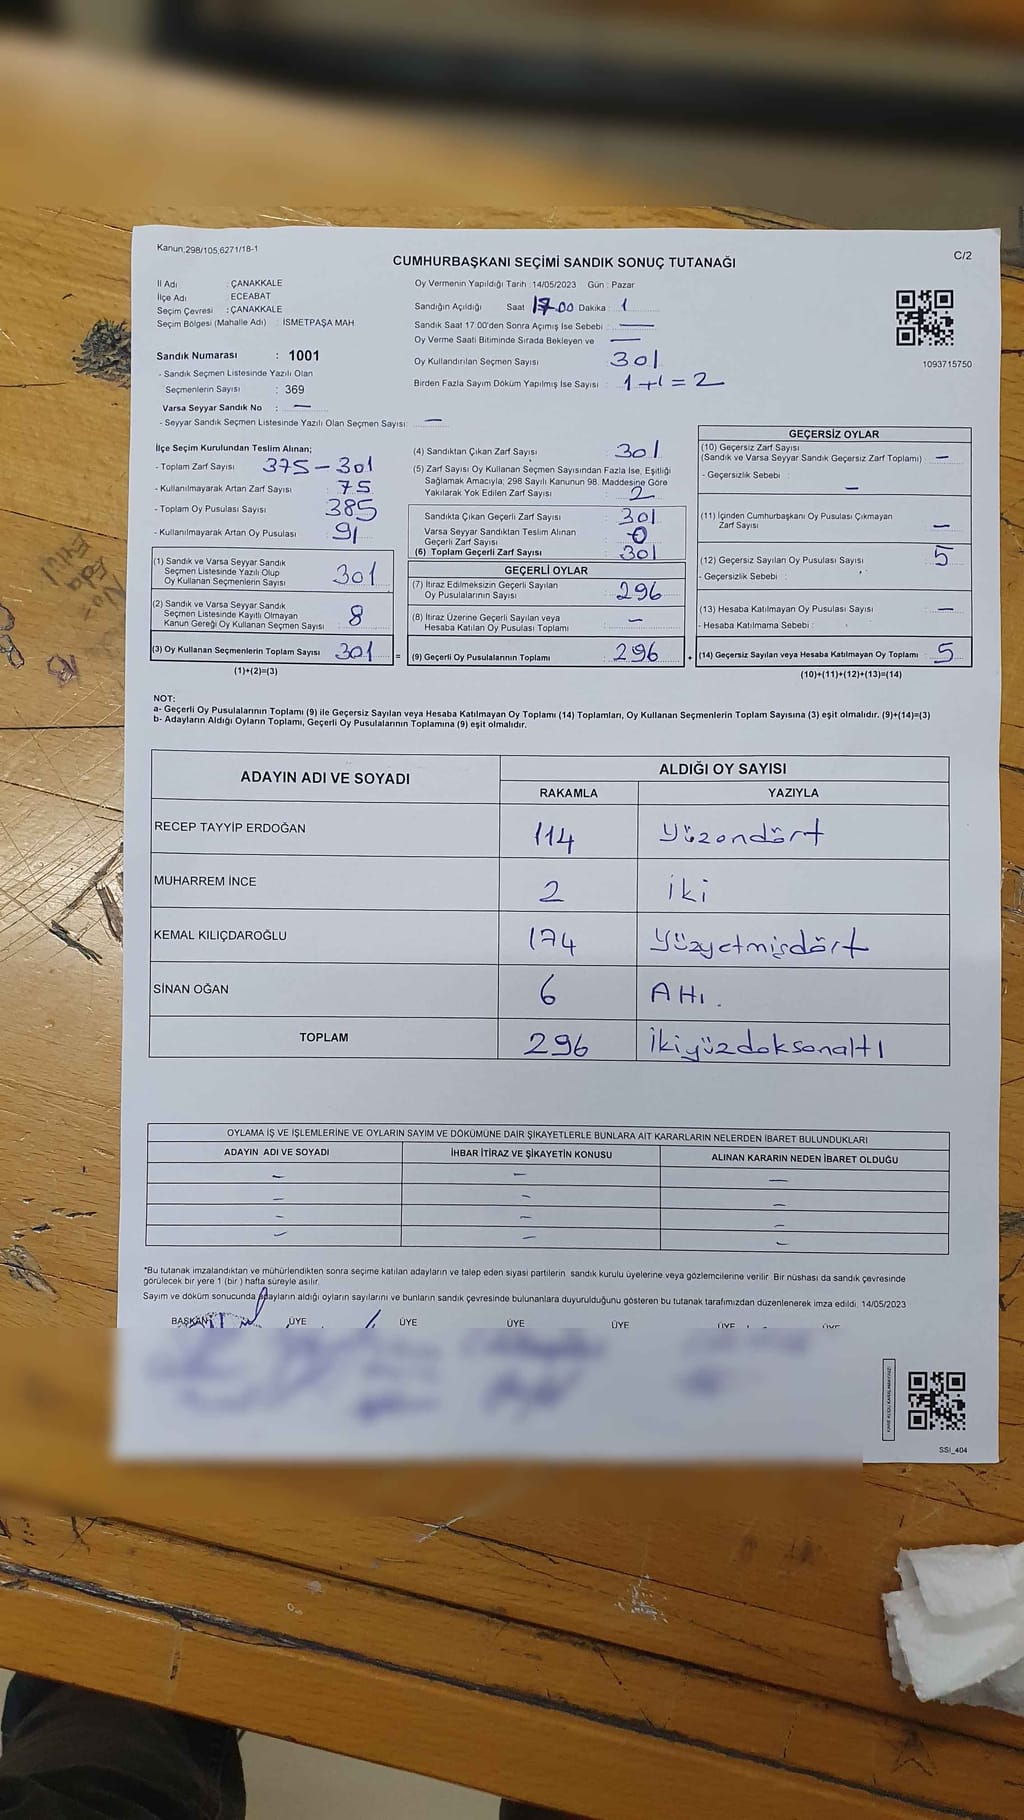 Kanun;298/105,6271/18-1
C/2
CUMHURBAŞKANI SEÇİMİ SANDIK SONUÇ TUTANAĞI
İl Adı : ÇANAKKALE
İlçe Adı : ECEABAT
Seçim Çevresi : ÇANAKKALE
Seçim Bölgesi (Mahalle Adı) : İSMETPAŞA MAH
Oy Vermenin Yapıldığı Tarih : 14/05/2023 Gün : Pazar
Sandığın Açıldığı Saat 17.00 Dakika : 1
Sandık Saat 17:00'den Sonra Açımış İse Sebebi : —
Oy Verme Saati Bitiminde Sırada Bekleyen ve —
Oy Kullandırılan Seçmen Sayısı 301
Birden Fazla Sayım Döküm Yapılmış İse Sayısı : 1+1=2
1093715750
Sandık Numarası : 1001
- Sandık Seçmen Listesinde Yazılı Olan
Seçmenlerin Sayısı : 369
Varsa Seyyar Sandık No : —
- Seyyar Sandık Seçmen Listesinde Yazılı Olan Seçmen Sayısı: —
İlçe Seçim Kurulundan Teslim Alınan;
- Toplam Zarf Sayısı 375-301
- Kullanılmayarak Artan Zarf Sayısı : 75
- Toplam Oy Pusulası Sayısı : 385
- Kullanılmayarak Artan Oy Pusulası : 91
(1) Sandık ve Varsa Seyyar Sandık
Seçmen Listesinde Yazılı Olup
Oy Kullanan Seçmenlerin Sayısı : 301
(2) Sandık ve Varsa Seyyar Sandık
Seçmen Listesinde Kayıtlı Olmayan
Kanun Gereği Oy Kullanan Seçmen Sayısı : 8
(3) Oy Kullanan Seçmenlerin Toplam Sayısı : 301
(1)+(2)=(3)
(4) Sandıktan Çıkan Zarf Sayısı : 301
(5) Zarf Sayısı Oy Kullanan Seçmen Sayısından Fazla İse, Eşitliği
Sağlamak Amacıyla; 298 Sayılı Kanunun 98. Maddesine Göre
Yakılarak Yok Edilen Zarf Sayısı : 2
Sandıkta Çıkan Geçerli Zarf Sayısı : 301
Varsa Seyyar Sandıktan Teslim Alınan
Geçerli Zarf Sayısı : 0
(6) Toplam Geçerli Zarf Sayısı : 301
GEÇERLİ OYLAR
(7) İtiraz Edilmeksizin Geçerli Sayılan
Oy Pusulalarının Sayısı : 296
(8) İtiraz Üzerine Geçerli Sayılan veya
Hesaba Katılan Oy Pusulası Toplamı : —
= (9) Geçerli Oy Pusulalarının Toplamı : 296
GEÇERSİZ OYLAR
(10) Geçersiz Zarf Sayısı
(Sandık ve Varsa Seyyar Sandık Geçersiz Zarf Toplamı) : —
- Geçersizlik Sebebi :
—
(11) İçinden Cumhurbaşkanı Oy Pusulası Çıkmayan
Zarf Sayısı : —
(12) Geçersiz Sayılan Oy Pusulası Sayısı : 5
- Geçersizlik Sebebi :
(13) Hesaba Katılmayan Oy Pusulası Sayısı : —
- Hesaba Katılmama Sebebi :
+ (14) Geçersiz Sayılan veya Hesaba Katılmayan Oy Toplamı : 5
(10)+(11)+(12)+(13)=(14)
NOT:
a- Geçerli Oy Pusulalarının Toplamı (9) ile Geçersiz Sayılan veya Hesaba Katılmayan Oy Toplamı (14) Toplamları, Oy Kullanan Seçmenlerin Toplam Sayısına (3) eşit olmalıdır. (9)+(14)=(3)
b- Adayların Aldığı Oyların Toplamı, Geçerli Oy Pusulalarının Toplamına (9) eşit olmalıdır.
ADAYIN ADI VE SOYADI ALDIĞI OY SAYISI
RAKAMLA YAZIYLA
RECEP TAYYİP ERDOĞAN 114 Yüzondört
MUHARREM İNCE 2 iki
KEMAL KILIÇDAROĞLU 174 Yüzyetmişdört
SİNAN OĞAN 6 Altı.
TOPLAM 296 İkiyüzdoksonaltı
OYLAMA İŞ VE İŞLEMLERİNE VE OYLARIN SAYIM VE DÖKÜMÜNE DAİR ŞİKAYETLERLE BUNLARA AİT KARARLARIN NELERDEN İBARET BULUNDUKLARI
ADAYIN ADI VE SOYADI İHBAR İTİRAZ VE ŞİKAYETİN KONUSU ALINAN KARARIN NEDEN İBARET OLDUĞU
— — —
— — —
— — —
— — —
*Bu tutanak imzalandıktan ve mühürlendikten sonra seçime katılan adayların ve talep eden siyasi partilerin sandık kurulu üyelerine veya gözlemcilerine verilir. Bir nüshası da sandık çevresinde
görülecek bir yere 1 (bir ) hafta süreyle asılır.
Sayım ve döküm sonucunda adayların aldığı oyların sayılarını ve bunların sandık çevresinde bulunanlara duyurulduğunu gösteren bu tutanak tarafımızdan düzenlenerek imza edildi. 14/05/2023
BAŞKAN ÜYE ÜYE ÜYE ÜYE ÜYE ÜYE
SSI_404